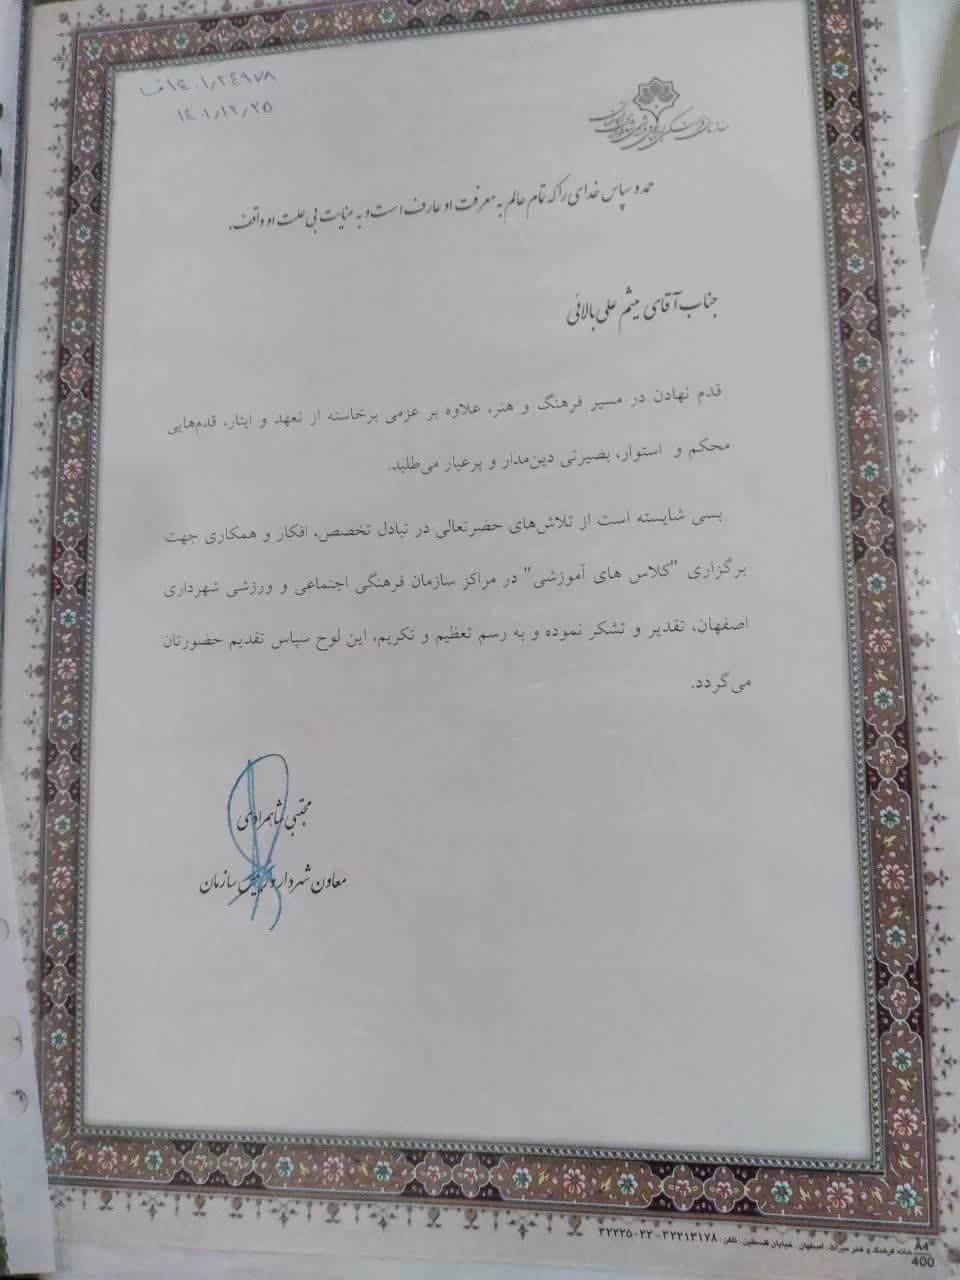 ۱۴۰۱/۲۴۹۷۸ ف
۱۴۰۱/۱۲/۲۵
سازمان فرهنگی اجتماعی ورزشی شهرداری اصفهان
حمد و سپاس خدای را که تمام عالم به معرفت او عارف است و به عنایت بی علت او واقف.
جناب آقای میثم علی بالائی
قدم نهادن در مسیر فرهنگ و هنر، علاوه بر عزمی برخاسته از تعهد و ایثار، قدم‌هایی
محکم و استوار، بصیرتی دین‌مدار و پرعیار می‌طلبد.
بسی شایسته است از تلاش‌های حضرتعالی در تبادل تخصص، افکار و همکاری جهت
برگزاری "کلاس های آموزشی" در مراکز سازمان فرهنگی اجتماعی و ورزشی شهرداری
اصفهان، تقدیر و تشکر نموده و به رسم تعظیم و تکریم، این لوح سپاس تقدیم حضورتان
می‌گردد.
مجتبی شاهمرادی
معاون شهردار و رئیس سازمان
A4
400
خانه فرهنگ و هنر میراث - اصفهان - خیابان فلسطین - تلفن: ۳۲۲۱۳۱۷۸ - ۳۲۲۲۵۰۲۲